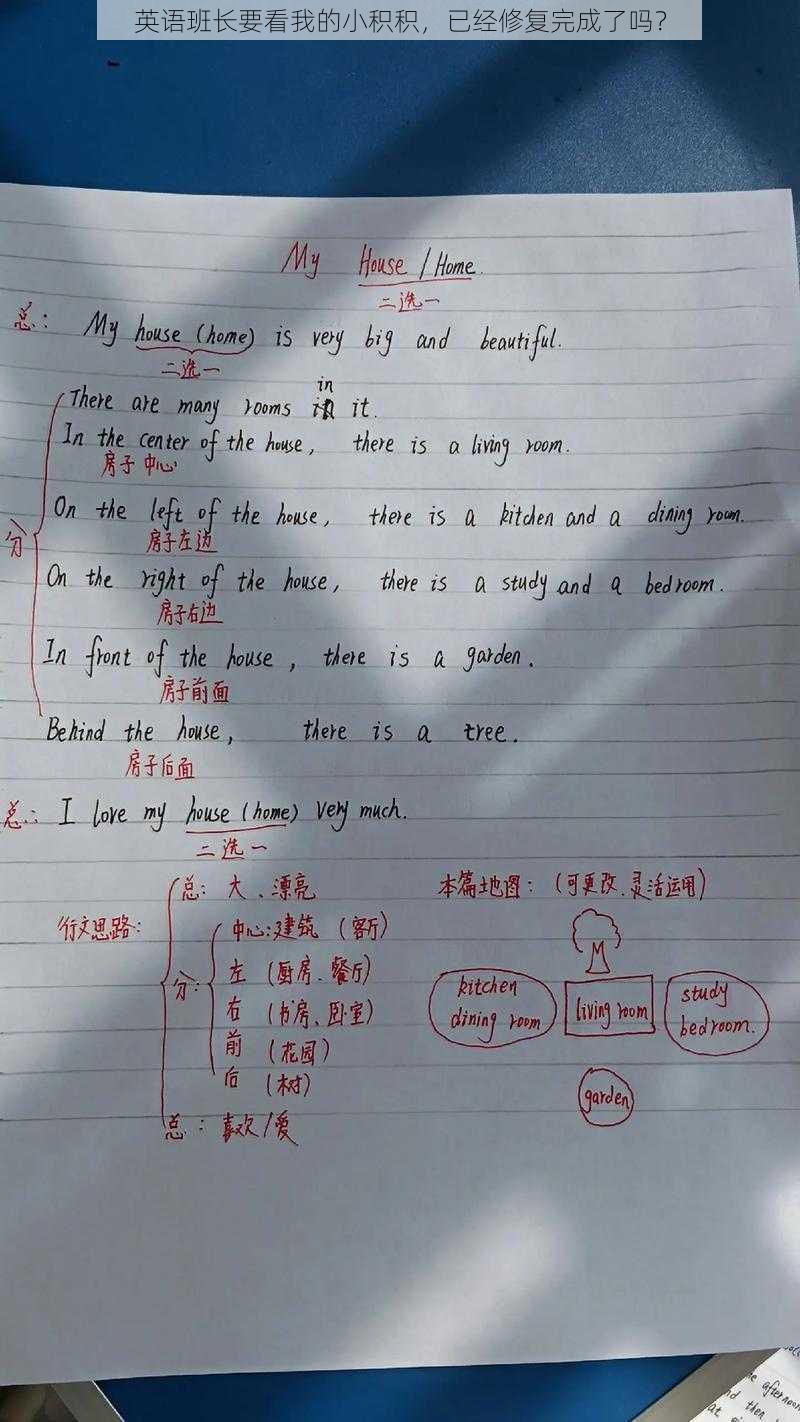 英语班长要看我的小积积，已经修复完成了吗？
My House / Home.
二选一
总： My house (home) is very big and beautiful.
二选一
in
There are many rooms in it.
In the center of the house, there is a living room.
房子中心
On the left of the house, there is a kitchen and a dining room.
房子左边
分
On the right of the house, there is a study and a bedroom.
房子右边
In front of the house, there is a garden.
房子前面
Behind the house, there is a tree.
房子后面
总： I love my house (home) very much.
二选一
行文思路：
总：大、漂亮
分：
中心：建筑（客厅）
左（厨房、餐厅）
右（书房、卧室）
前（花园）
后（树）
总：喜欢/爱
本篇地图：（可更改、灵活运用）
kitchen
dining room
living room
study
bedroom.
garden